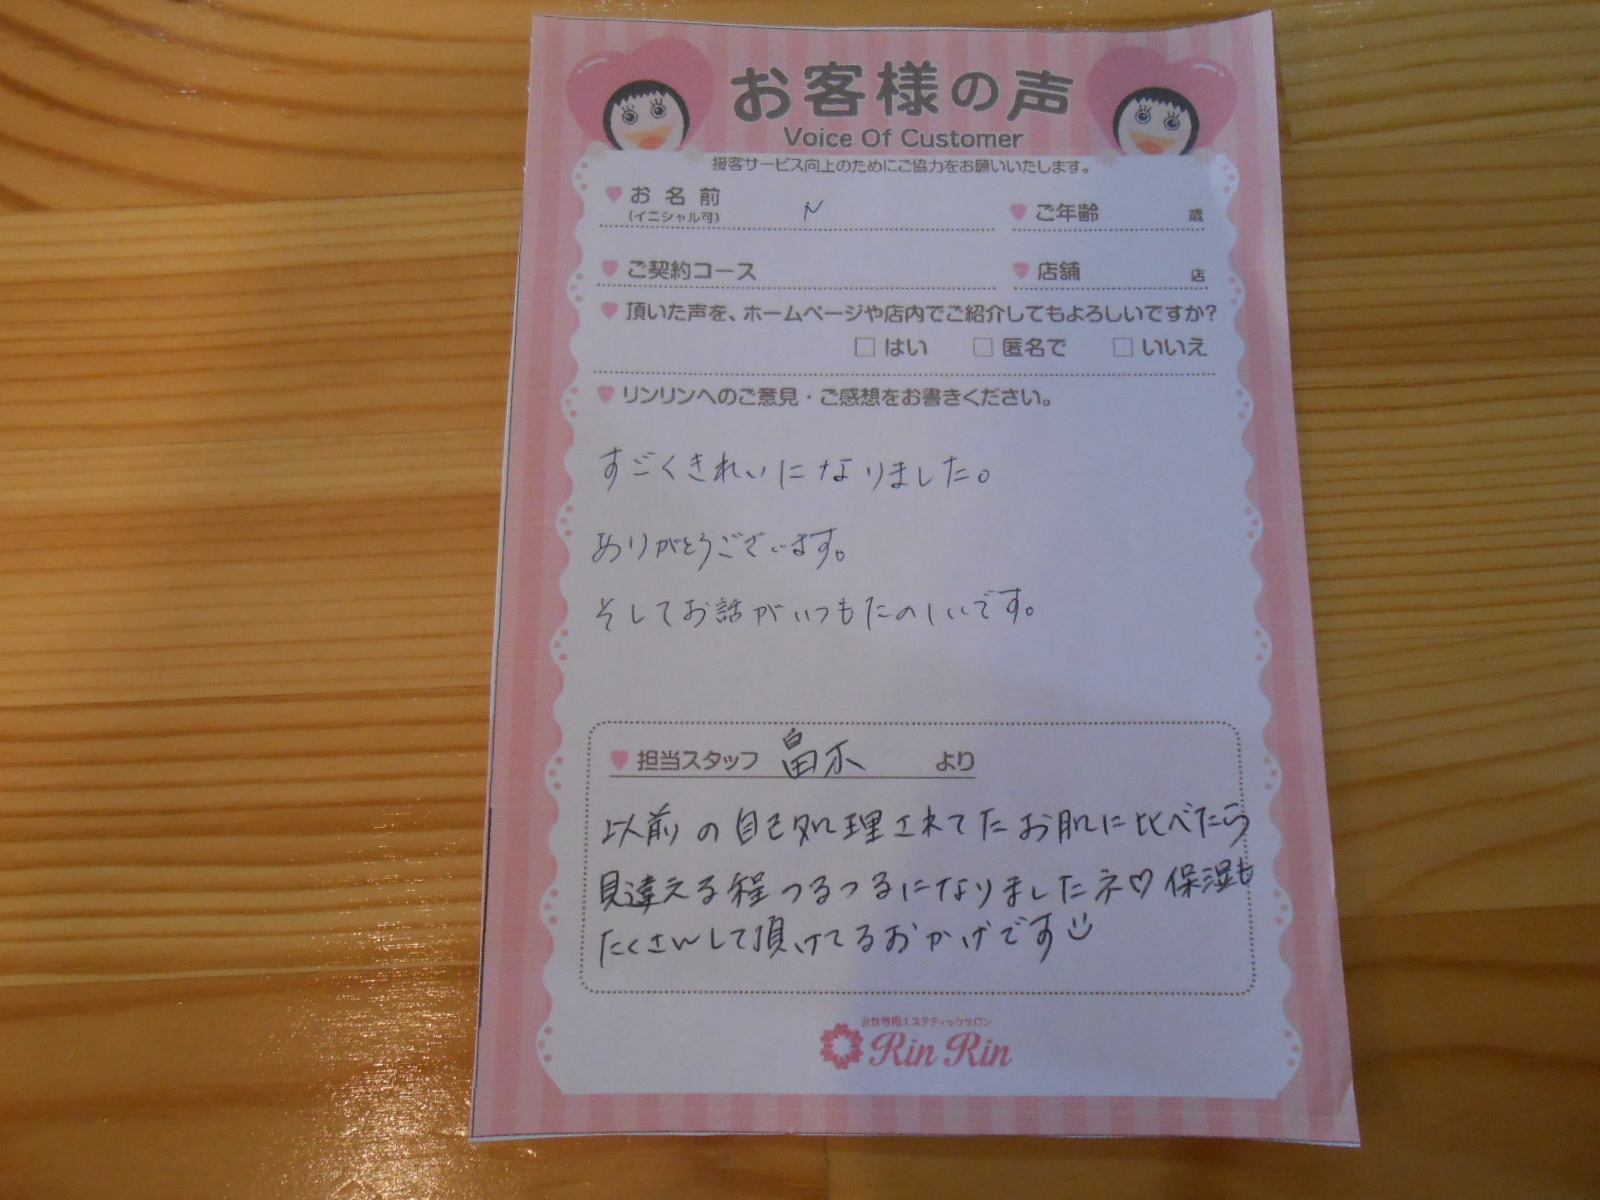 お客様の声
Voice Of Customer
接客サービス向上のためにご協力をお願いいたします。
お名前 N ご年齢 歳
(イニシャル可)
ご契約コース 店舗 店
頂いた声を、ホームページや店内でご紹介してもよろしいですか?
はい 匿名で いいえ
リンリンへのご意見・ご感想をお書きください。
すごくきれいになりました。
ありがとうございます。
そしてお話がいつもたのしいです。
担当スタッフ 畠木 より
以前の自己処理されてたお肌に比べたら
見違える程つるつるになりましたネ♡ 保湿も
たくさんして頂けてるおかげです
女性専用エステティックサロン
Rin Rin